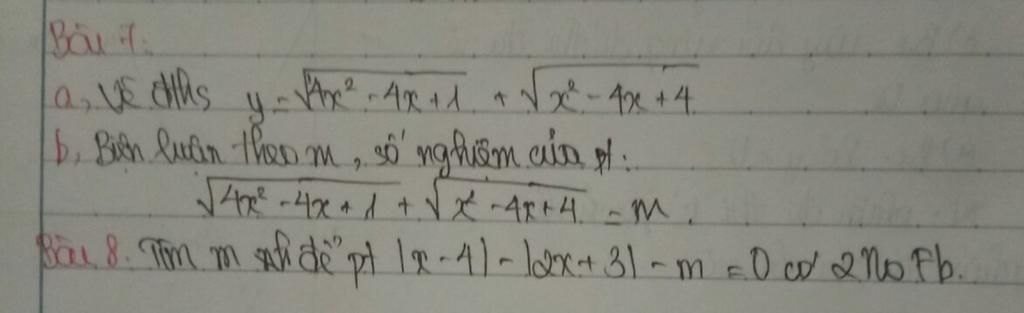 Bài 7:
a, Vẽ đths y = √4x² - 4x + 1 + √x² - 4x + 4
b, Biện luận theo m, số nghiệm của pt:
√4x² - 4x + 1 + √x² - 4x + 4 = m.
Bài 8. Tìm m để pt |x - 4| - |2x + 3| - m = 0 có 2 no Pb.